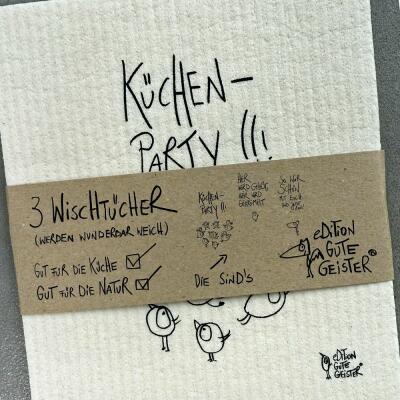 KÜCHEN-
PARTY !!!
3 WISCHTÜCHER
(WERDEN WUNDERBAR WEICH)
GUT FÜR DIE KÜCHE
GUT FÜR DIE NATUR
KÜCHEN-
PARTY !!!
HIER
SO WAR
SCHÖN
DIE SIND'S
EDITION
GUTE
GEISTER®
EDITION
GUTE
GEISTER